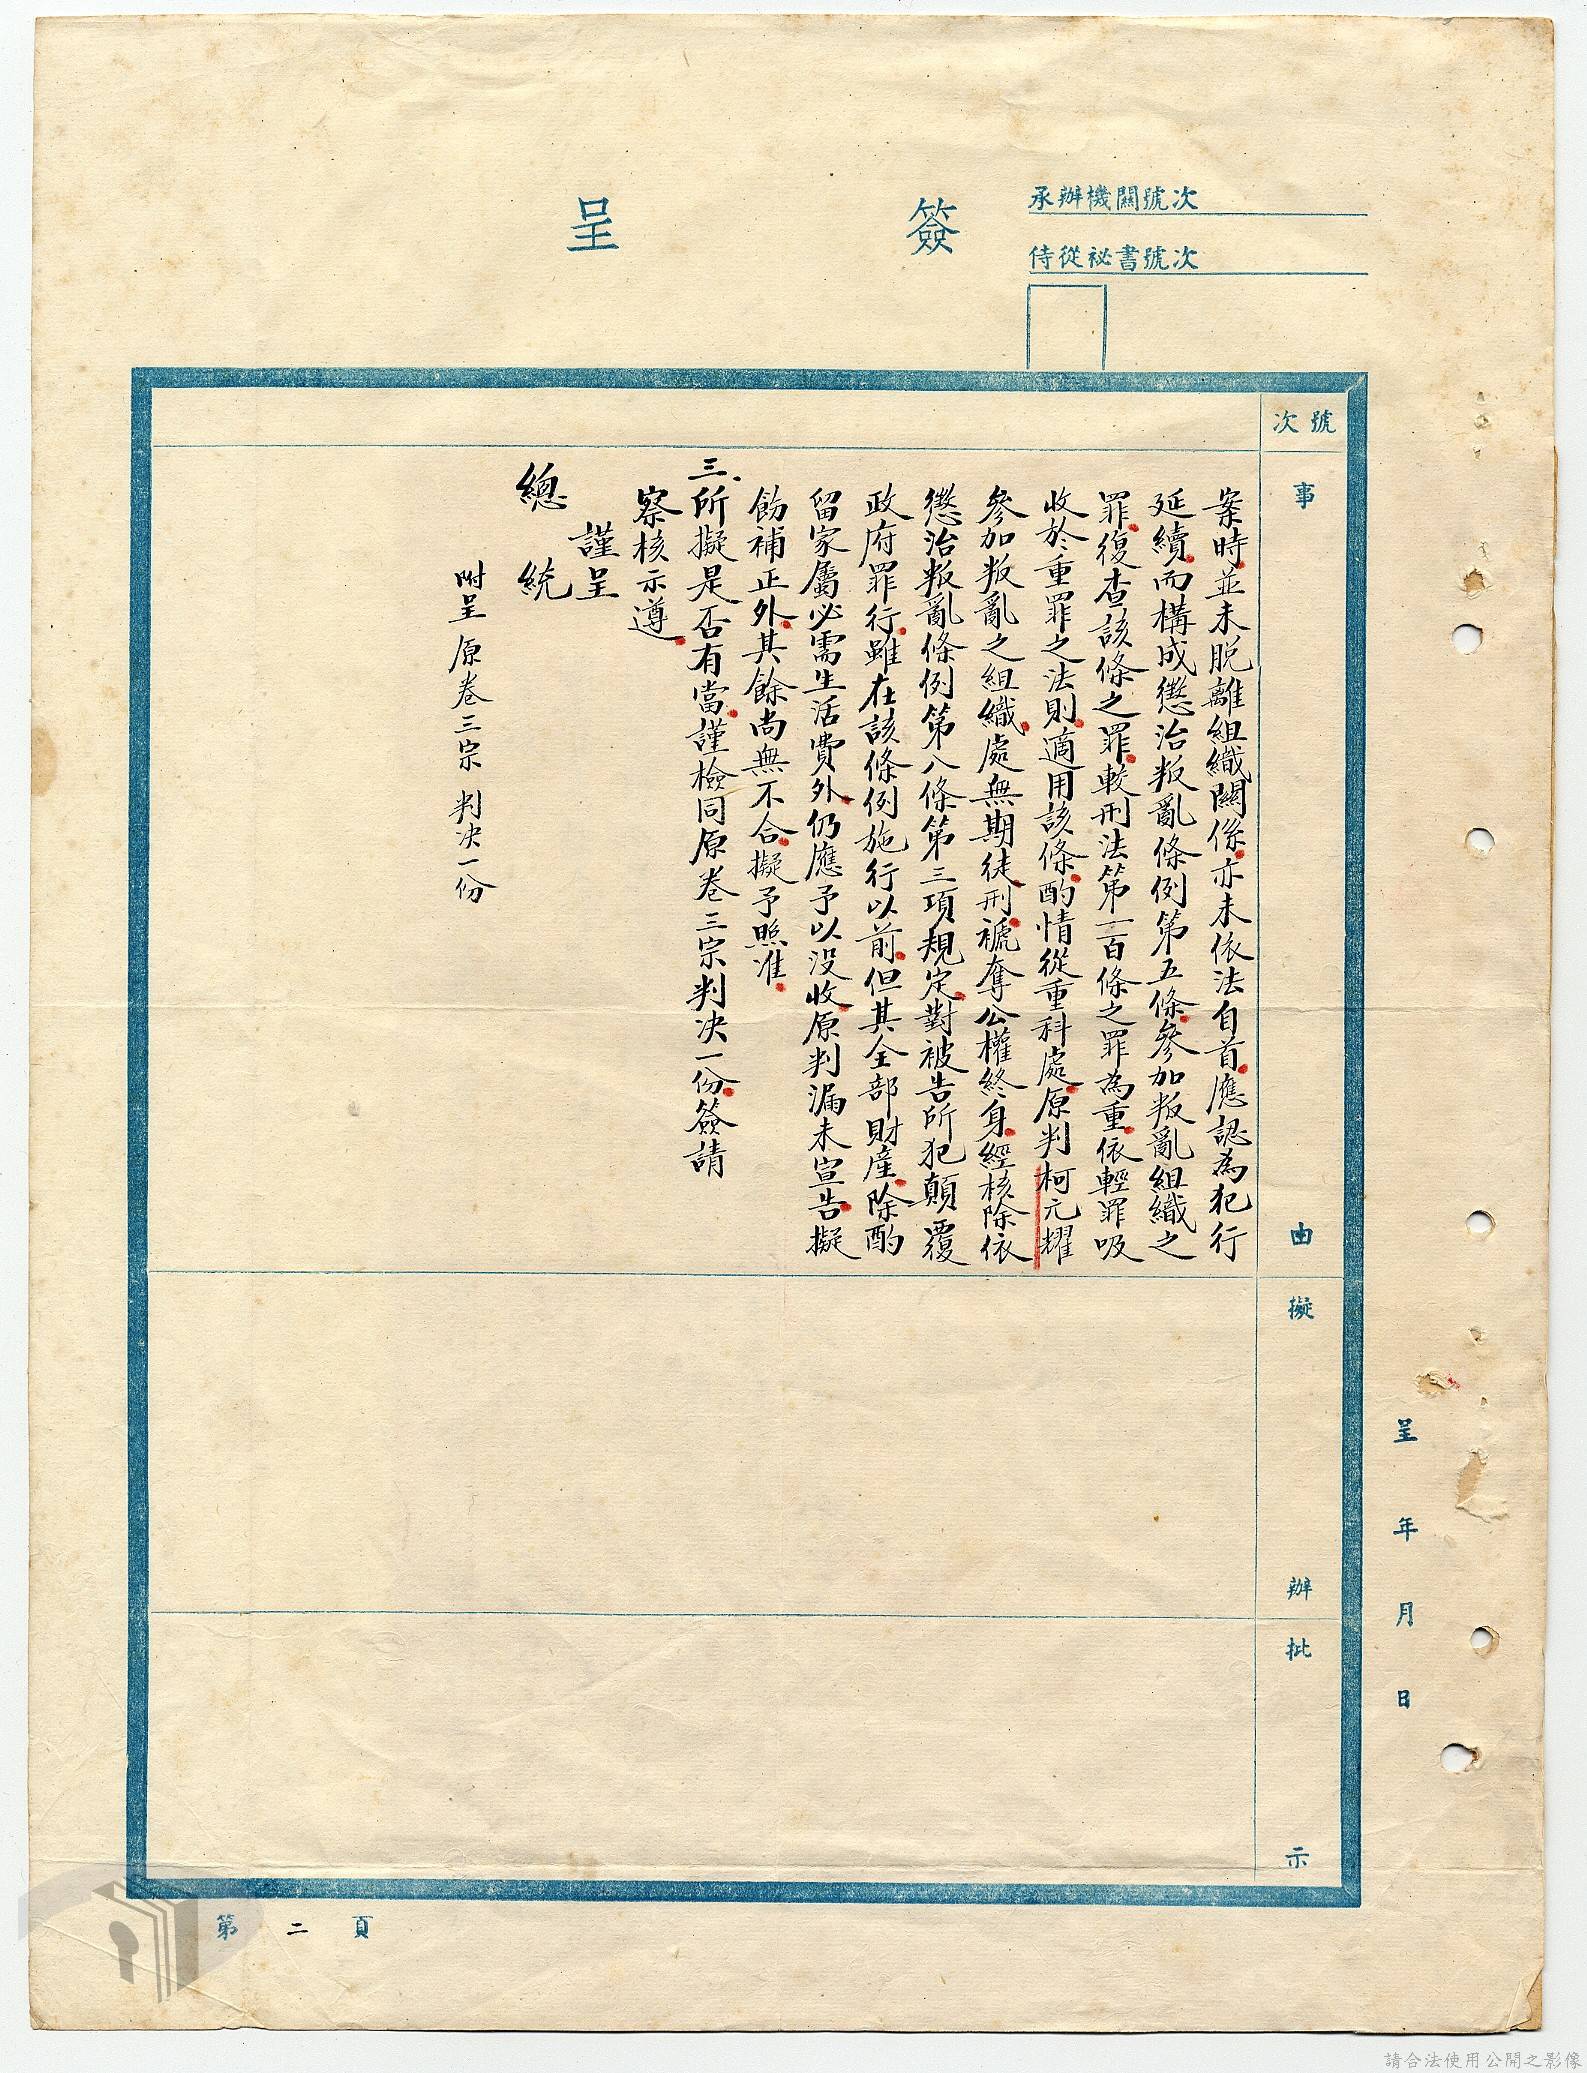 簽呈
承辦機關號次
侍從祕書號次
號次
事由
擬辦
批示
呈 年 月 日
案時並未脫離組織關係亦未依法自首應認為犯行
延續而構成懲治叛亂條例第五條參加叛亂組織之
罪復查該條之罪較刑法第一百條之罪為重依輕罪吸
收於重罪之法則適用該條酌情從重科處原判柯元耀
參加叛亂之組織處無期徒刑褫奪公權終身經核除依
懲治叛亂條例第八條第三項規定對被告所犯顛覆
政府罪行雖在該條例施行以前但其全部財產除酌
留家屬必需生活費外仍應予以沒收原判漏未宣告擬
飭補正外其餘尚無不合擬予照准
三、所擬是否有當謹檢同原卷三宗判決一份簽請
察核示遵
謹呈
總統
附呈原卷三宗 判決一份
第二頁
請合法使用公開之影像